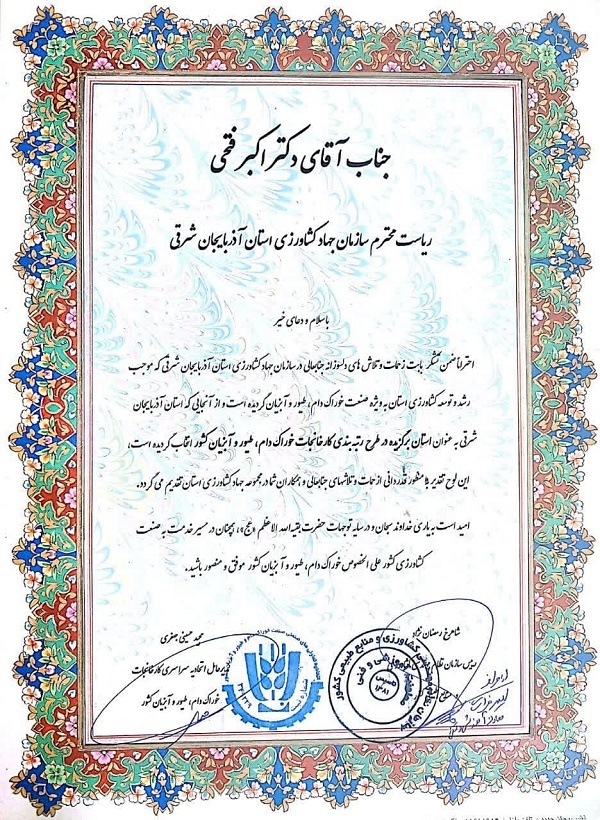 جناب آقای دکتر اکبر فتحی
ریاست محترم سازمان جهاد کشاورزی استان آذربایجان شرقی
باسلام و دعای خیر
احتراماً ضمن تشکر بابت زحمات و تلاش های دلسوزانه جنابعالی در سازمان جهاد کشاورزی استان آذربایجان شرقی که موجب
رشد و توسعه کشاورزی استان به ویژه صنعت خوراک دام، طیور و آبزیان گردیده است و از آنجائی که استان آذربایجان
شرقی به عنوان استان برگزیده در طرح رتبه بندی کارخانجات خوراک دام، طیور و آبزیان کشور انتخاب گردیده است،
این لوح تقدیر بمنظور قدردانی از زحمات و تلاشهای جنابعالی و همکاران شما در مجموعه جهاد کشاورزی استان تقدیم می گردد.
امید است به یاری خداوند سبحان و در سایه توجهات حضرت بقیه الله الاعظم «عج»، همچنان در مسیر خدمت به صنعت
کشاورزی کشور علی الخصوص خوراک دام، طیور و آبزیان کشور موفق و منصور باشید.
شاهرخ رمضان نژاد
رئیس سازمان نظام
مجید حسینی جعفری
مدیرعامل اتحادیه سراسری کارخانجات
خوراک دام، طیور و آبزیان کشور
کشاورزی و منابع طبیعی کشور
تاسیس
۱۳۸۱